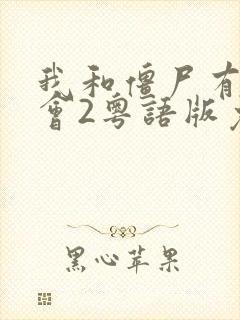 我和僵尸有
會2粵語版
黑心苹果